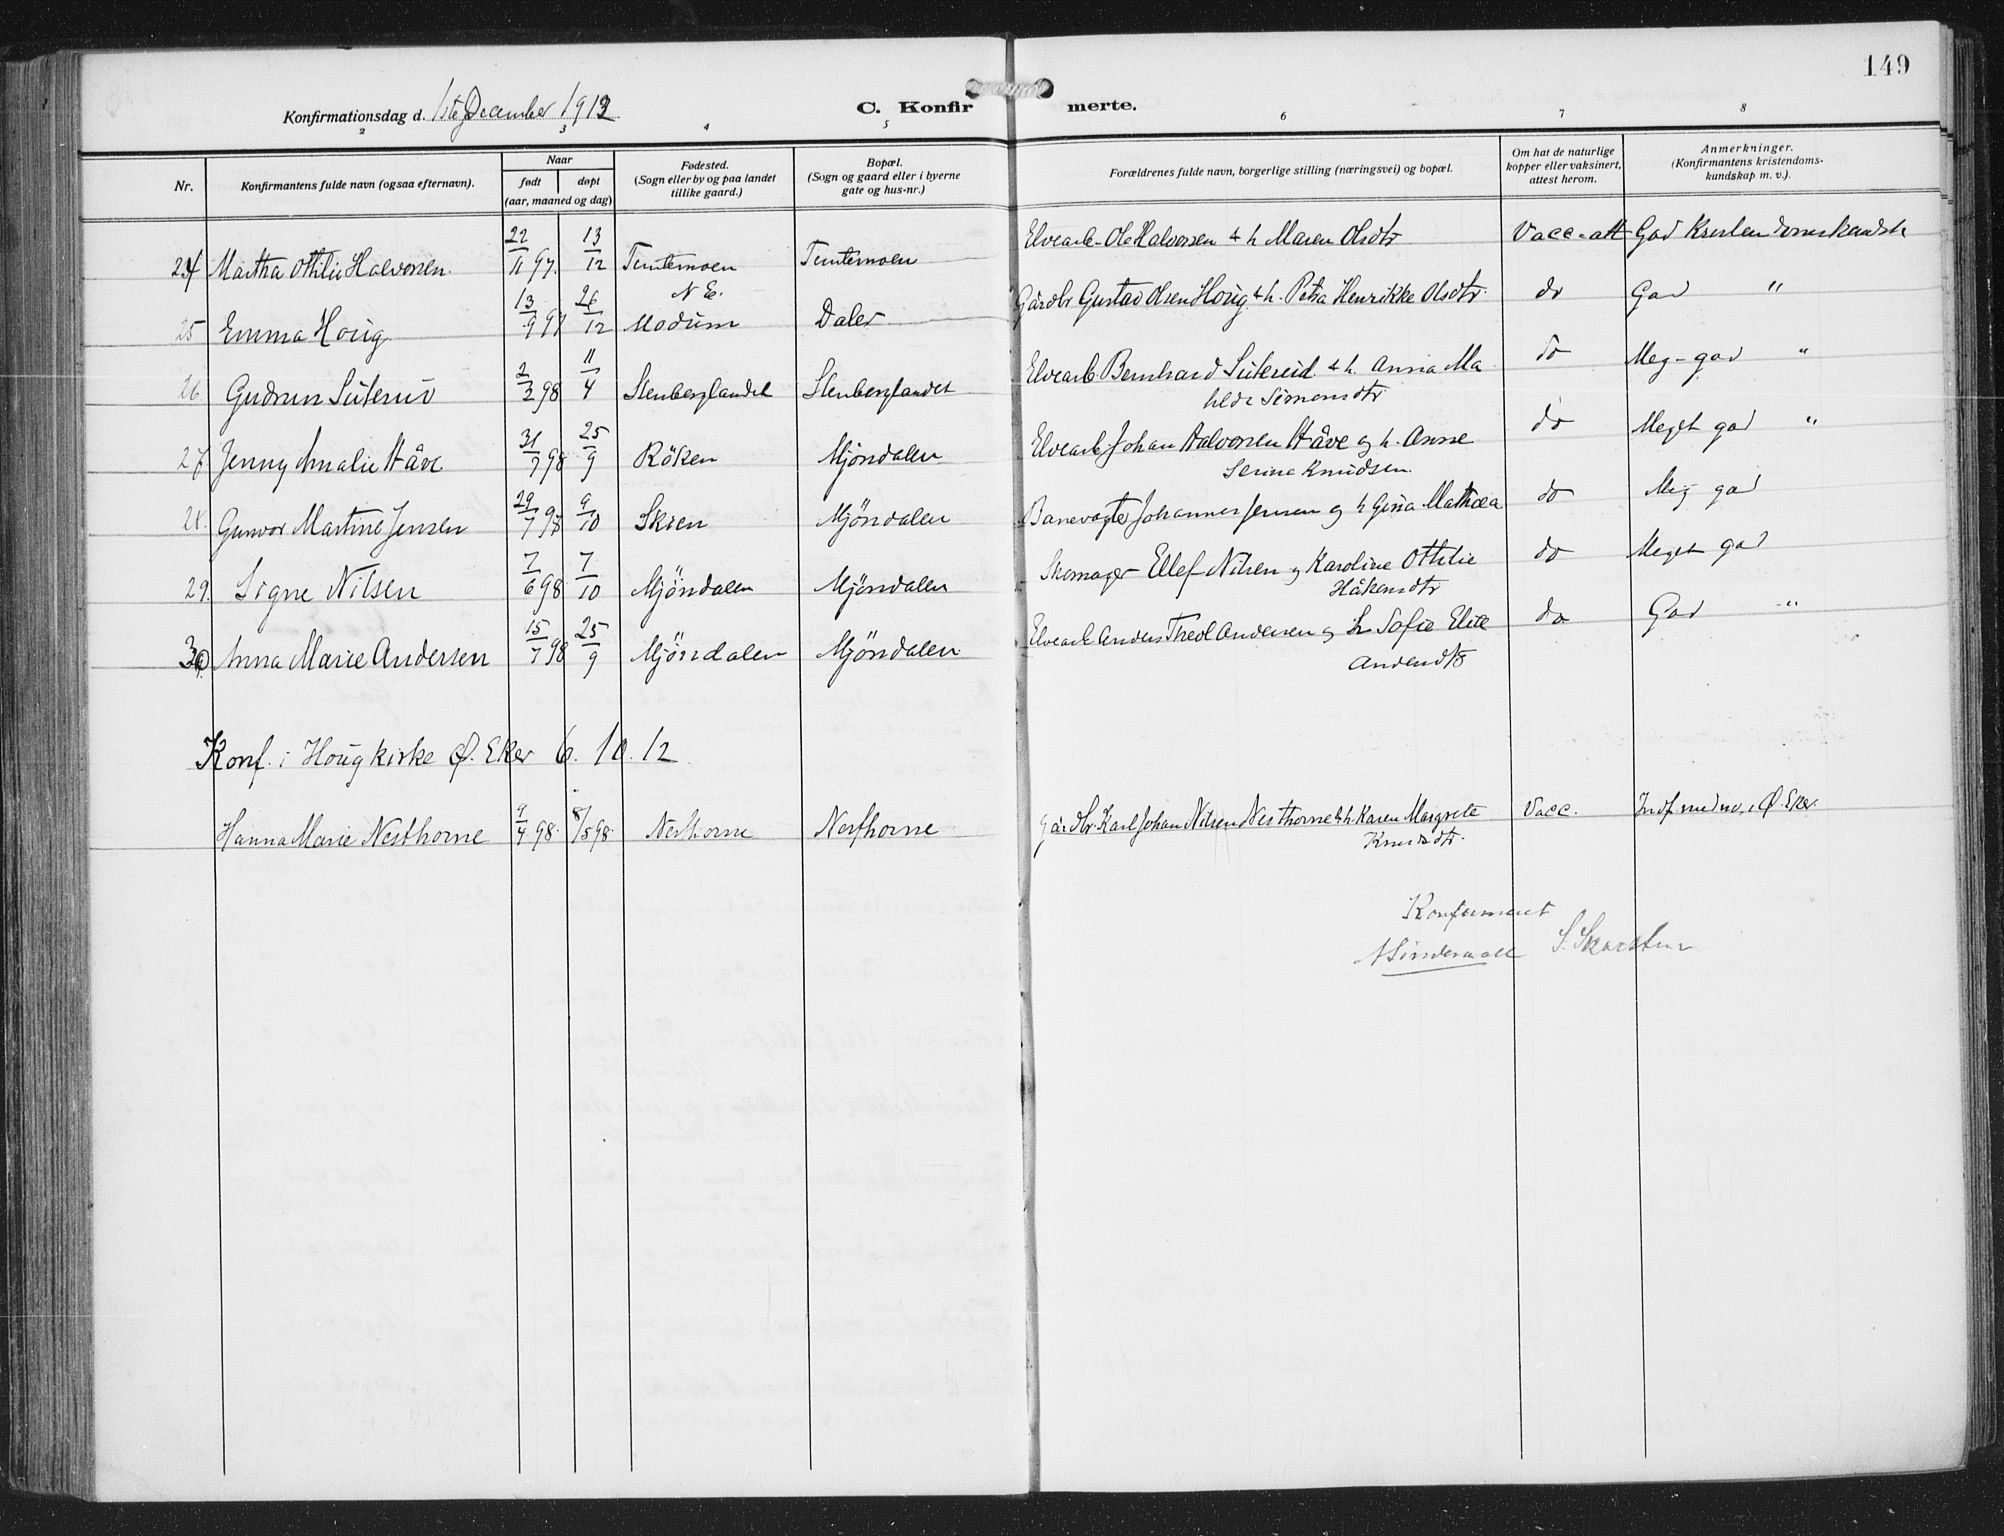 149
Konfirmationsdag d. 1ste December 1912
C. Konfirmerte.
2 3 4 5 6 7 8
Nr.
Konfirmantens fulde navn (ogsaa efternavn).
Naar
født døpt
(aar, maaned og dag)
Fødested.
(Sogn eller by og paa landet
tillike gaard.)
Bopæl.
(Sogn og gaard eller i byerne
gate og hus-nr.)
Forældrenes fulde navn, borgerlige stilling (næringsvei) og bopæl.
Om hat de naturlige
kopper eller vaksinert,
attest herom.
Anmerkninger.
(Konfirmantens kristendoms-
kundskap m. v.).
24 Martha Othilie Halvorsen. 22/11 97. 13/12 Temtemoen Temtemoen Elvearb. Ole Halvorsen & h Maren Olsdtr Vacc-att God Kristendomskundsk
25 Emma Houg 13/9 97 26/12 N E. Modum Daler Gårdbr Gustav Olsen Houg & h. Petra Henrikke Olsdtr. do God "
26 Gudrun 2/3 98 11/4 Stenberglandet Stenberglandet Elvearb Bernhard & h. Anna Ma
thilde Simensdtr do Meg-god "
27 Jenny Amalie Håve 31/7 98 25/9 Röken Mjöndalen Elvearb Johan Halvorsen Håve og h. Anne
Serine Knudsen. do Meget god "
28. Gunvor Martine Jensen 29/7 98 9/10 Skien Mjöndalen Banevogter Johannes Jensen og h Gina Mathea do Meg god
29. Signe Nilsen 7/6 98 7/10 Mjöndalen Mjöndalen Skomager Ellef Nilsen og Karoline Othilie
Håkensdtr do Meget god
30. Anna Marie Andersen 15/7 98 25/9 Mjöndalen Mjöndalen Elvearb Anders Theod Andersen og h Sofie
Andersdtr do God "
Konf. i Hougkirke Ø. Eker 6. 10. 12
Hanna Marie Nesthorne 9/4 98. 8/5 98. Nesthorne Nesthorne Gårdbr. Karl Johan Nilsen Nesthorne & h Karen Margrete
Knudsdtr. Vacc. Indf. med no. i Ø. Eker.